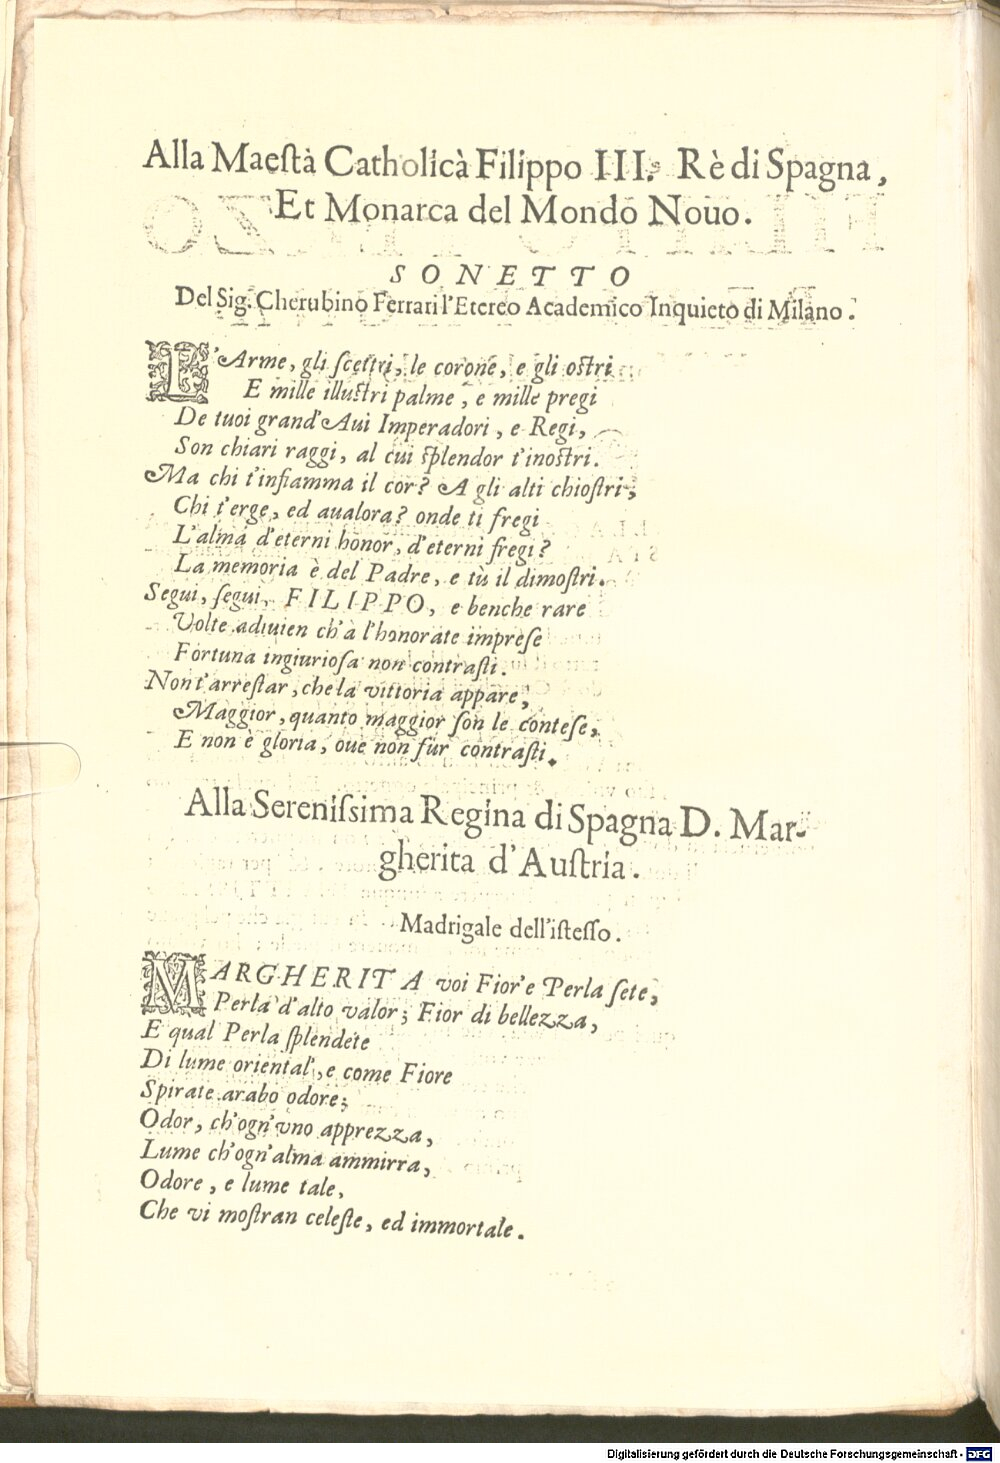 Alla Maeſtà Catholicà Filippo III. Rè di Spagna,
Et Monarca del Mondo Nouo.
SONETTO
Del Sig. Cherubino Ferrari l'Etereo Academico Inquieto di Milano.
L'Arme, gli ſcettri, le corone, e gli oſtri
E mille illuſtri palme, e mille pregi
De tuoi grand' Aui Imperadori, e Regi,
Son chiari raggi, al cui ſplendor t'inoſtri.
Ma chi t'infiamma il cor? A gli alti chioſtri,
Chi t'erge, ed aualora? onde ti fregi
L'alma d'eterni honor, d'eterni fregi?
La memoria è del Padre, e tù il dimoſtri.
Segui, ſegui, FILIPPO, e benche rare
Volte adiuien ch'à l'honorate impreſe
Fortuna ingiurioſa non contraſti.
Non t'arreſtar, che la vittoria appare,
Maggior, quanto maggior ſon le conteſe,
E non è gloria, oue non fur contraſti.
Alla Sereniſsima Regina di Spagna D. Mar-
gherita d'Auſtria.
Madrigale dell'iſteſſo.
MARGHERITA voi Fior'e Perla ſete,
Perla d'alto valor; Fior di bellezza,
E qual Perla ſplendete
Di lume oriental', e come Fiore
Spirate arabo odore;
Odor, ch'ogn'vno apprezza,
Lume ch'ogn'alma ammirra,
Odore, e lume tale,
Che vi moſtran celeſte, ed immortale.
Digitalisierung gefördert durch die Deutsche Forschungsgemeinschaft - DFG